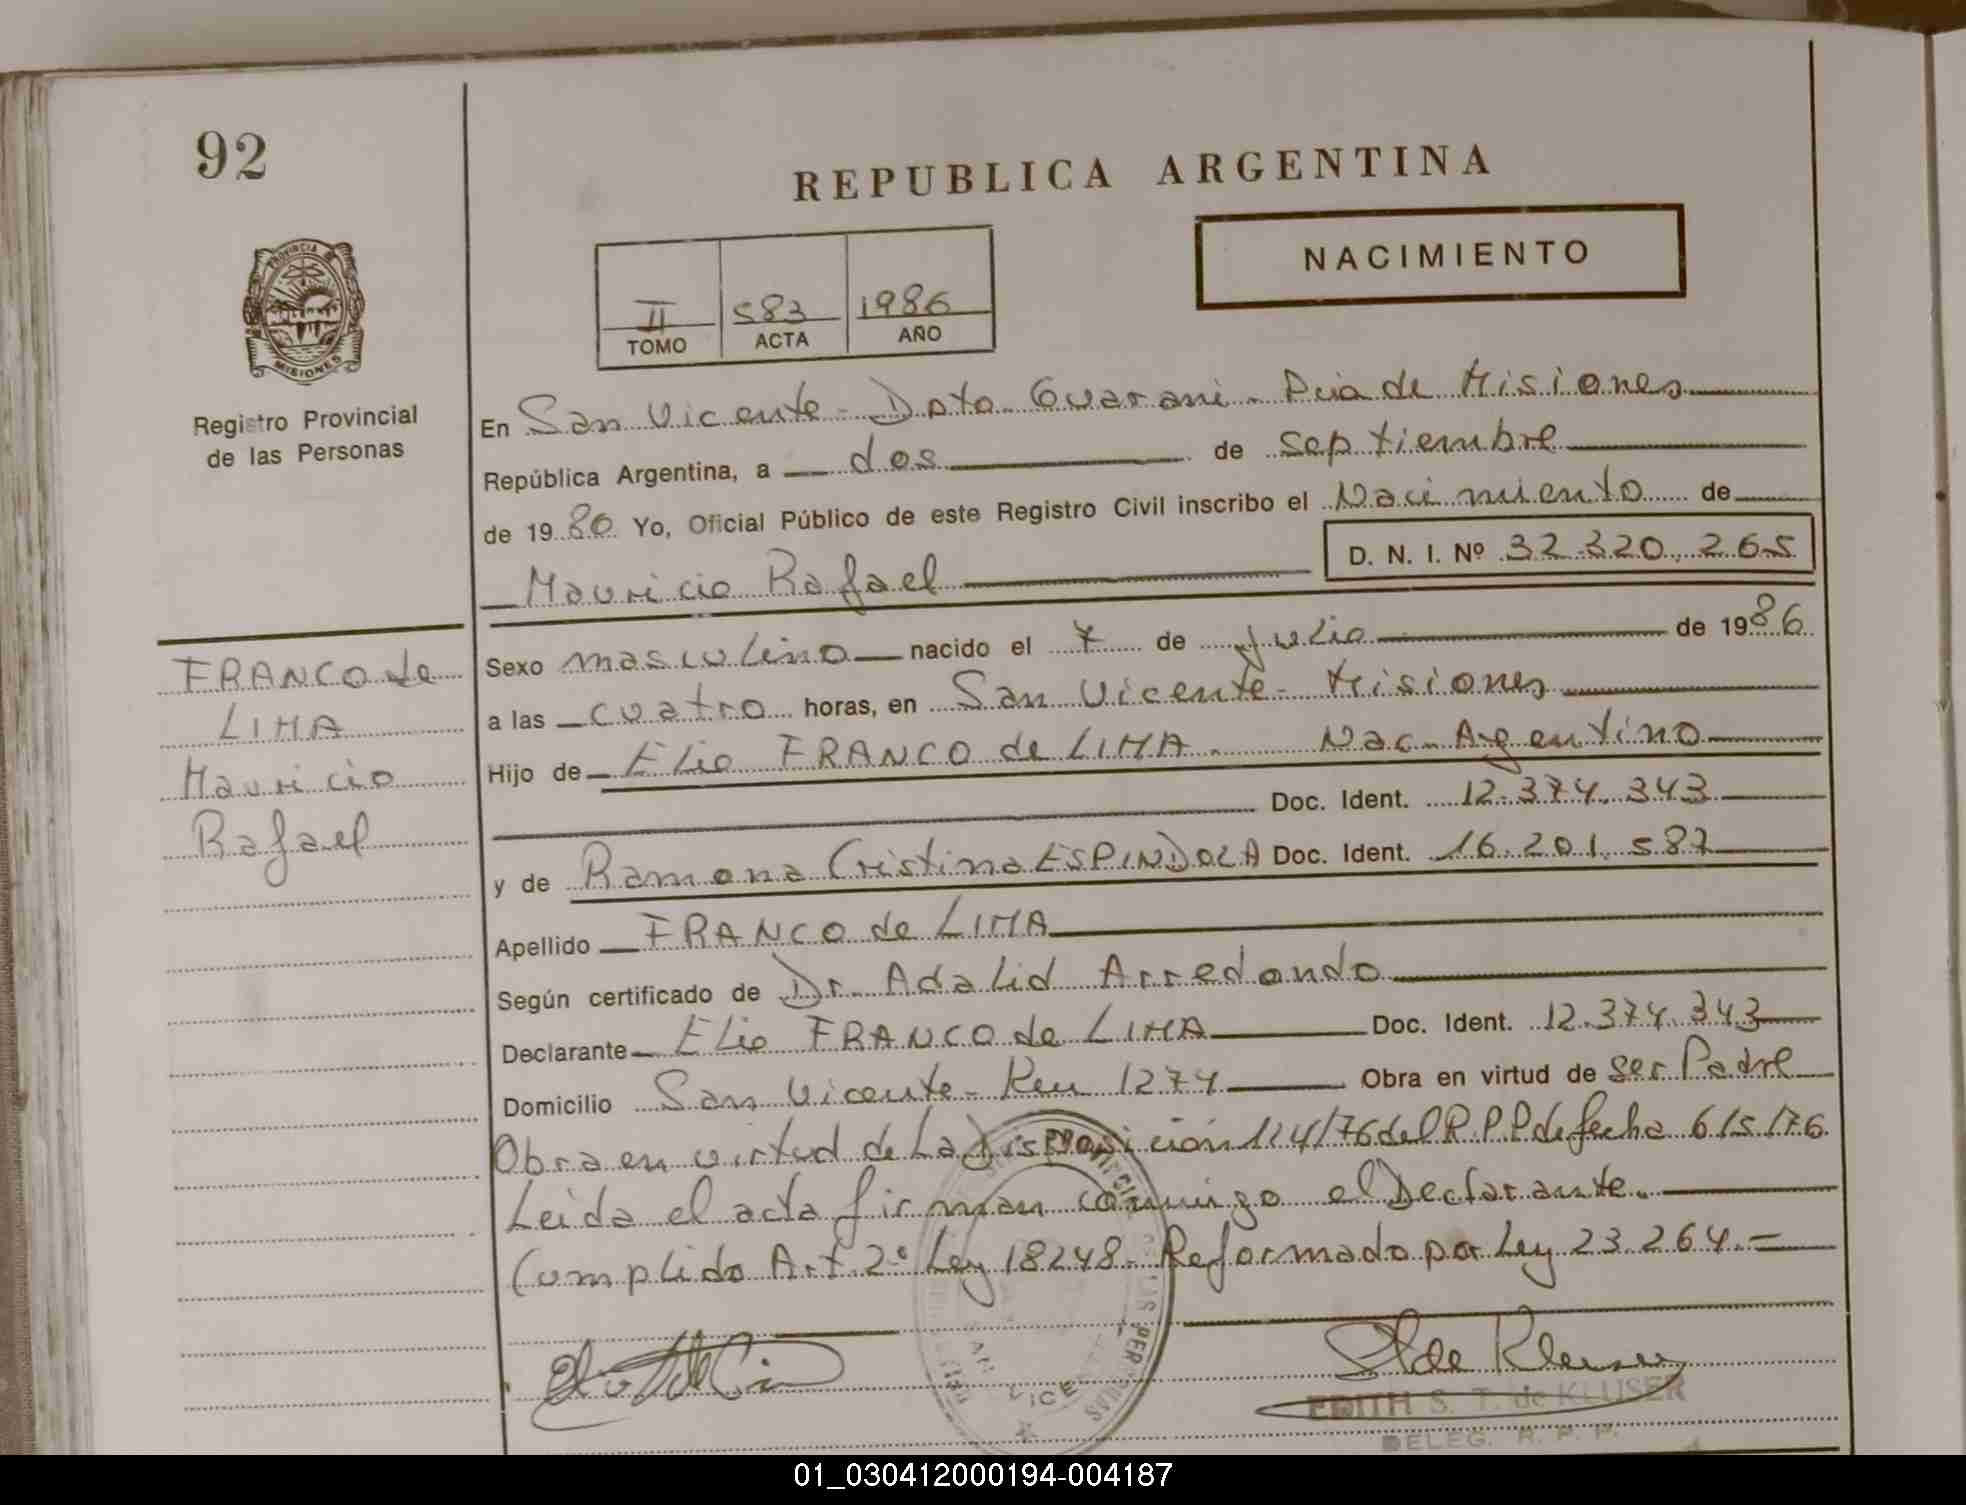 92
REPUBLICA ARGENTINA
NACIMIENTO
II 583 1986
TOMO ACTA AÑO
PROVINCIA
MISIONES
Registro Provincial
de las Personas
En San Vicente - Dpto Guarani - Pcia de Misiones
República Argentina, a dos de septiembre
de 1986 Yo, Oficial Público de este Registro Civil inscribo el Nacimiento de
Mauricio Rafael D. N. I. Nº 32.320.265
FRANCO de
LIMA
Mauricio
Rafael
Sexo masculino nacido el 7 de Julio de 1986
a las cuatro horas, en San Vicente - Misiones
Hijo de Elio FRANCO de LIMA - Nac. Argentino
Doc. Ident. 12.374.343
y de Ramona Cristina ESPINDOLA Doc. Ident. 16.201.587
Apellido FRANCO de LIMA
Según certificado de Dr. Adalid Arredondo
Declarante Elio FRANCO de LIMA Doc. Ident. 12.374.343
Domicilio San Vicente - Km 1274 Obra en virtud de ser Padre
Obra en virtud de La Disposición 114/76 del R.P.P. de fecha 6/5/76.
Leida el acta firman conmigo el Declarante.
Cumplido Art. 2º Ley 18248 - Reformado por Ley 23.264.=
EDITH S. T. de KLUSER
DELEG. R. P. P.
01_030412000194-004187